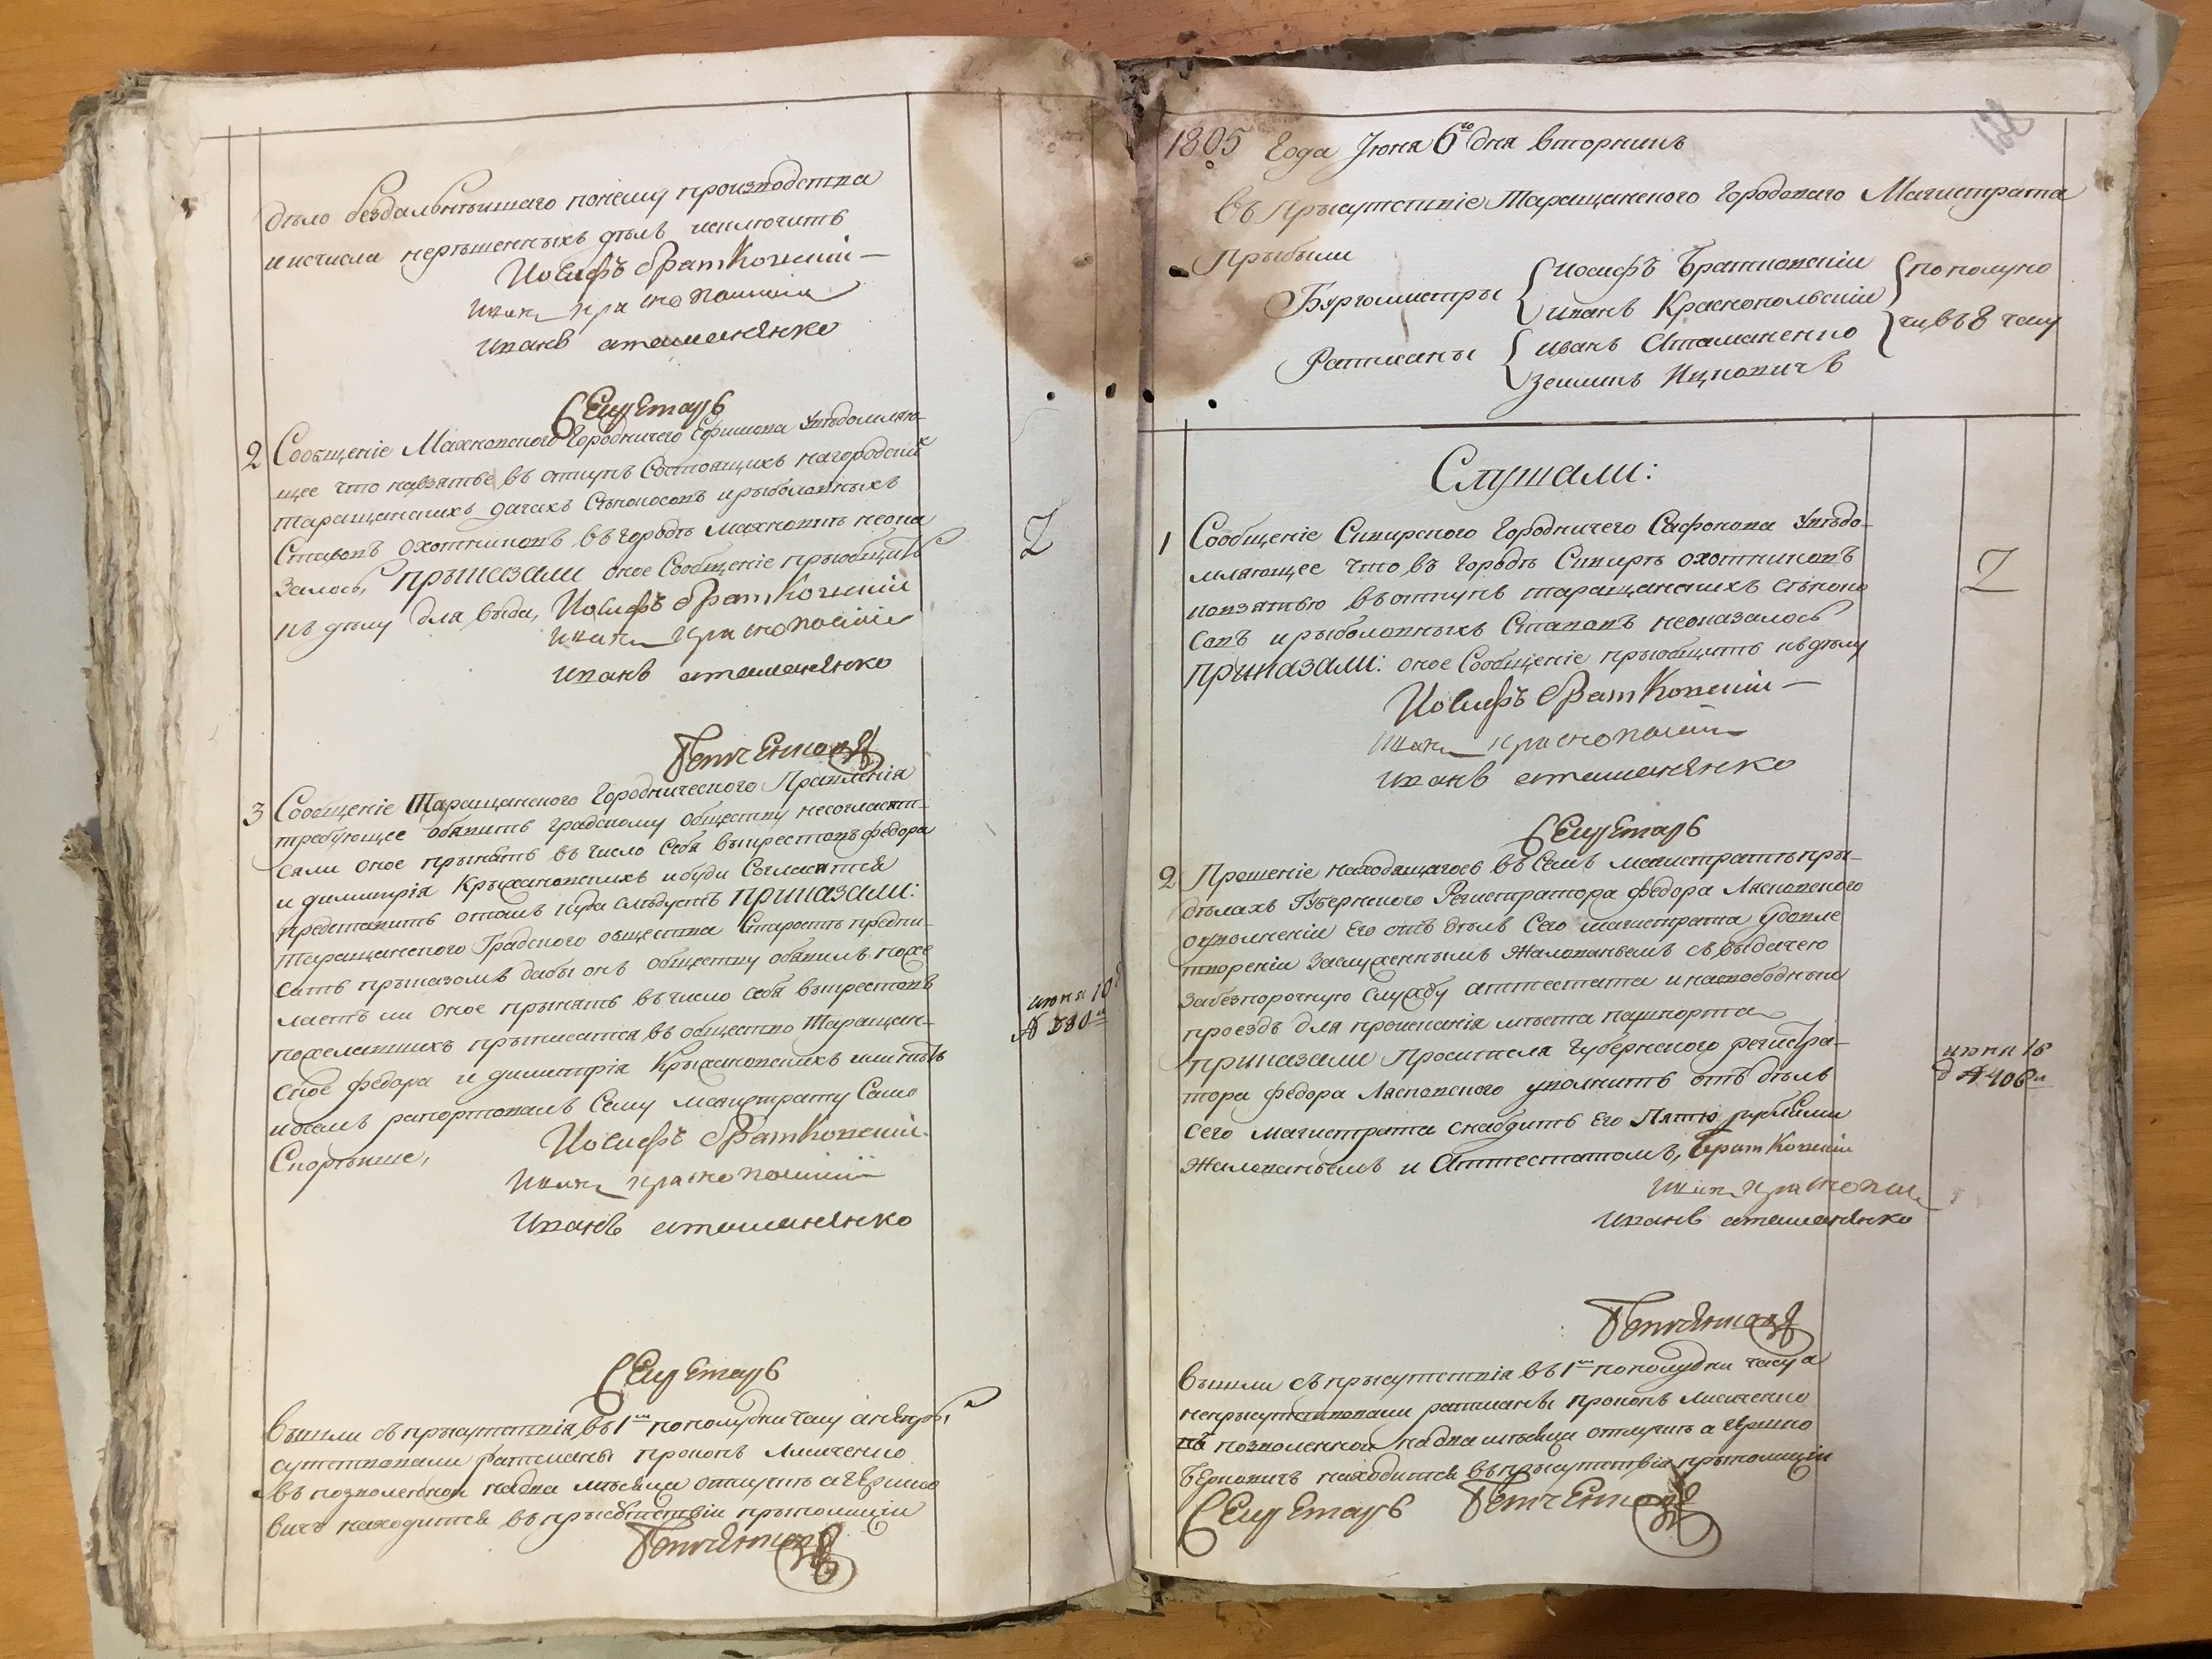 дѣло бездальнѣишаго понему производства
и исчисла нерѣшенныхъ дѣлъ исключить
Иосифъ Братковский
Иван Краснополский
Иванъ Атаманенко
Секретарь
2 Сообщеніе Махновского Городничего Ефимова Увѣдомляю-
щее что навзятье въ откупъ Состоящихъ нагородскихъ
таращанскихъ дачахъ Сѣнокосовъ ирыболовныхъ
Ставовъ охотниковъ въ городѣ Махновкѣ неока
залось, приказали оное Сообщеніе прыобщить
къ дѣлу для выда, Иосифъ Братковский
Иван Краснополский
Иванъ Атаманенко
3 Сообщеніе Таращанского Городнического Правленія
требующее обявить градскому обществу несогласит-
сяли оное прынять въ число Себя выкрестовъ федора
и димитрія Крыжановскихъ ибуди Согласится
представить отомъ куда слѣдуетъ приказали:
таращанского Градского общества Старостѣ предпи-
сать прыказомъ дабы онъ обществу обявилъ поже
лаетъ ли оное прынять въ число себя выкрестовъ
пожелавшихъ прыписатся въ общество Таращан-
ское федора и димитрія Крыжановскихъ или нѣтъ
иотомъ рапортовалъ Сему магистрату Само
Скорѣише,
Иосифъ Братковский
Иван Краснополский
Иванъ Атаманенко
июня 10
№ 380
Секретарь
вышли съ прысутствія въ 1м пополудни часу а непры
сутствовали ратманы прокопъ Лисиченко
въ позволенном надва мѣсяца отпуску а Гершко
вичъ находится въ прысутствіи прытомщии
1805 Года Іюня 6го дня вторникъ
въ Прысутствіе Таращанского Городоваго Магистрата
Прыбыли
Бургомистры Иосифъ Братковскій пополуно
Иванъ Краснопольскій чи, въ 8 часу
Ратманы Иванъ Атаманенко
Зеликъ Ицковичъ
Слушали:
1 Сообщеніе Сквирского Городничего Сафонова Увѣдо-
мляющее что въ городѣ Сквирѣ охотниковъ
ковзятью въоткупъ таращанскихъ сѣноко
совъ ирыболовныхъ Ставовъ неоказалось
приказали: оное Сообщеніе прыобщить къдѣлу
Иосифъ Братковский
Иван Краснополский
Иванъ Атаманенко
Секретарь
2 Прошеніе находящагося въ Семъ магистратѣ пры-
дѣлахъ Губернского Регистратора федора Лясковского
оуволненіи Его отъ дѣлъ Сего магистрата удовле
твореніи Заслуженнымъ Жалованьемъ съ выдачею
забезпорочную службу аттестата и насвободный
проездъ для прописканія мѣста пашпорта
приказали Просителя Губернского регистра-
тора федора Лясковского уволнить отъ дѣлъ
сего магистрата снабдить Его Пятю рублями
Жалованьемъ и Аттестатомъ, Братковский
Иван Краснополский
Иванъ Атаманенко
июня 16
№ 406
вышли съ прысутствія въ 1м пополудни часу а
непрысутствовали ратманы прокопъ лисиченко
въ позволенном надва мѣсяца отпуску а Гершко
Берковичъ находится въ прысутствіи прытомщии
Секретарь